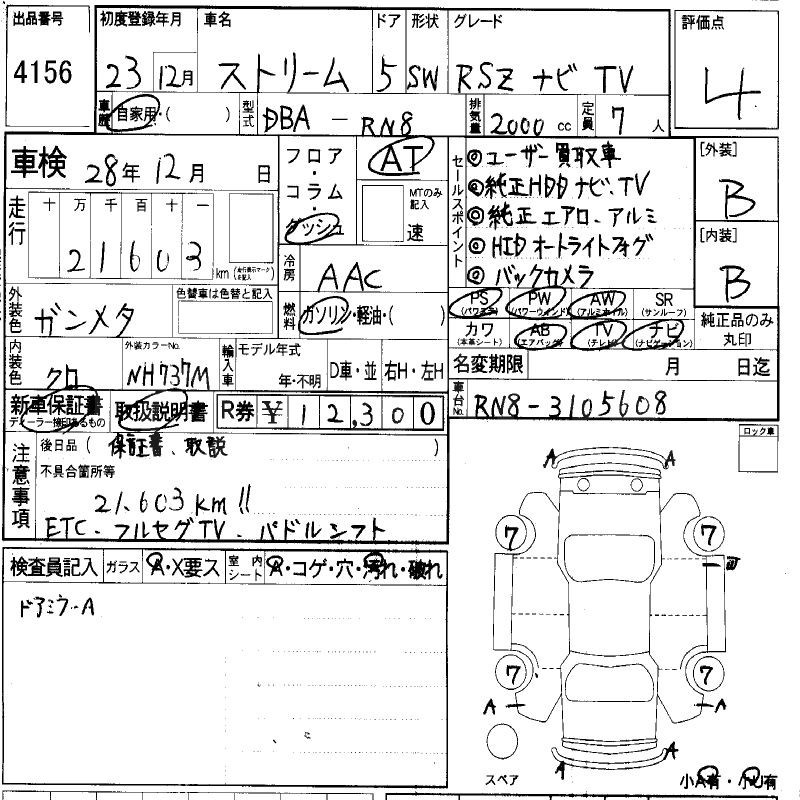 出品番号 初度登録年月 車名 ドア 形状 グレード 評価点
4156 23 12月 ストリーム 5 SW RSZ ナビ TV 4
車歴 自家用・( ) 型式 DBA - RN8 排気量 2000 cc 定員 7 人
車検 28年 12月 日
フロア・コラム・ダッシュ AT MTのみ記入 速
セールスポイント
◎ユーザー買取車
◎純正HDDナビ、TV
◎純正エアロ、アルミ
◎HIDオートライトフォグ
◎バックカメラ
[外装] B
[内装] B
走行 十 万 千 百 十 一
2 1 6 0 3 km (走行表示マークを記入)
冷房 AAC
外装色 ガンメタ 色替車は色替と記入
燃料 ガソリン・軽油・( )
PS (パワステ) PW (パワーウインド) AW (アルミホイル) SR (サンルーフ)
カワ (本革シート) AB (エアバッグ) TV (テレビ) ナビ (ナビゲーション)
純正品のみ丸印
内装色 クロ 外装カラーNo. NH737M 輸入車 モデル年式 年・不明 D車・並 右H・左H
名変期限 月 日迄
新車保証書 ディーラー捺印あるもの 取扱説明書 R券 ¥ 1 2,3 0 0
車台No. RN8-3105608
注意事項 後日品( 保証書、取説 )
不具合箇所等
21,603km!!
ETC・フルセグTV・パドルシフト
ロック車
検査員記入 ガラス A・X要ス 室内シート A・コゲ・穴・汚れ・破れ
ドアミラーA
A A
7 7
W
7 7
A A
A A
スペア 小A有・小U有